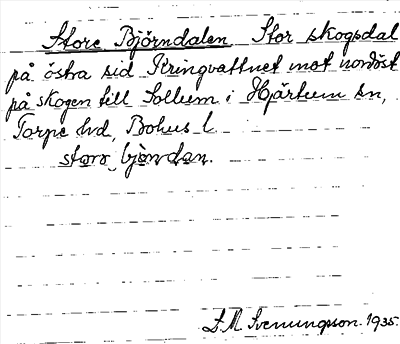 Store Björndalen Stor skogsdal
på östra sid Kringvattnet mot nordöst
på skogen till Sollum i Hjärtum sn,
Torpe hd, Bohus l.
storo bjòndan.
S. M. Svenungsson. 1935.